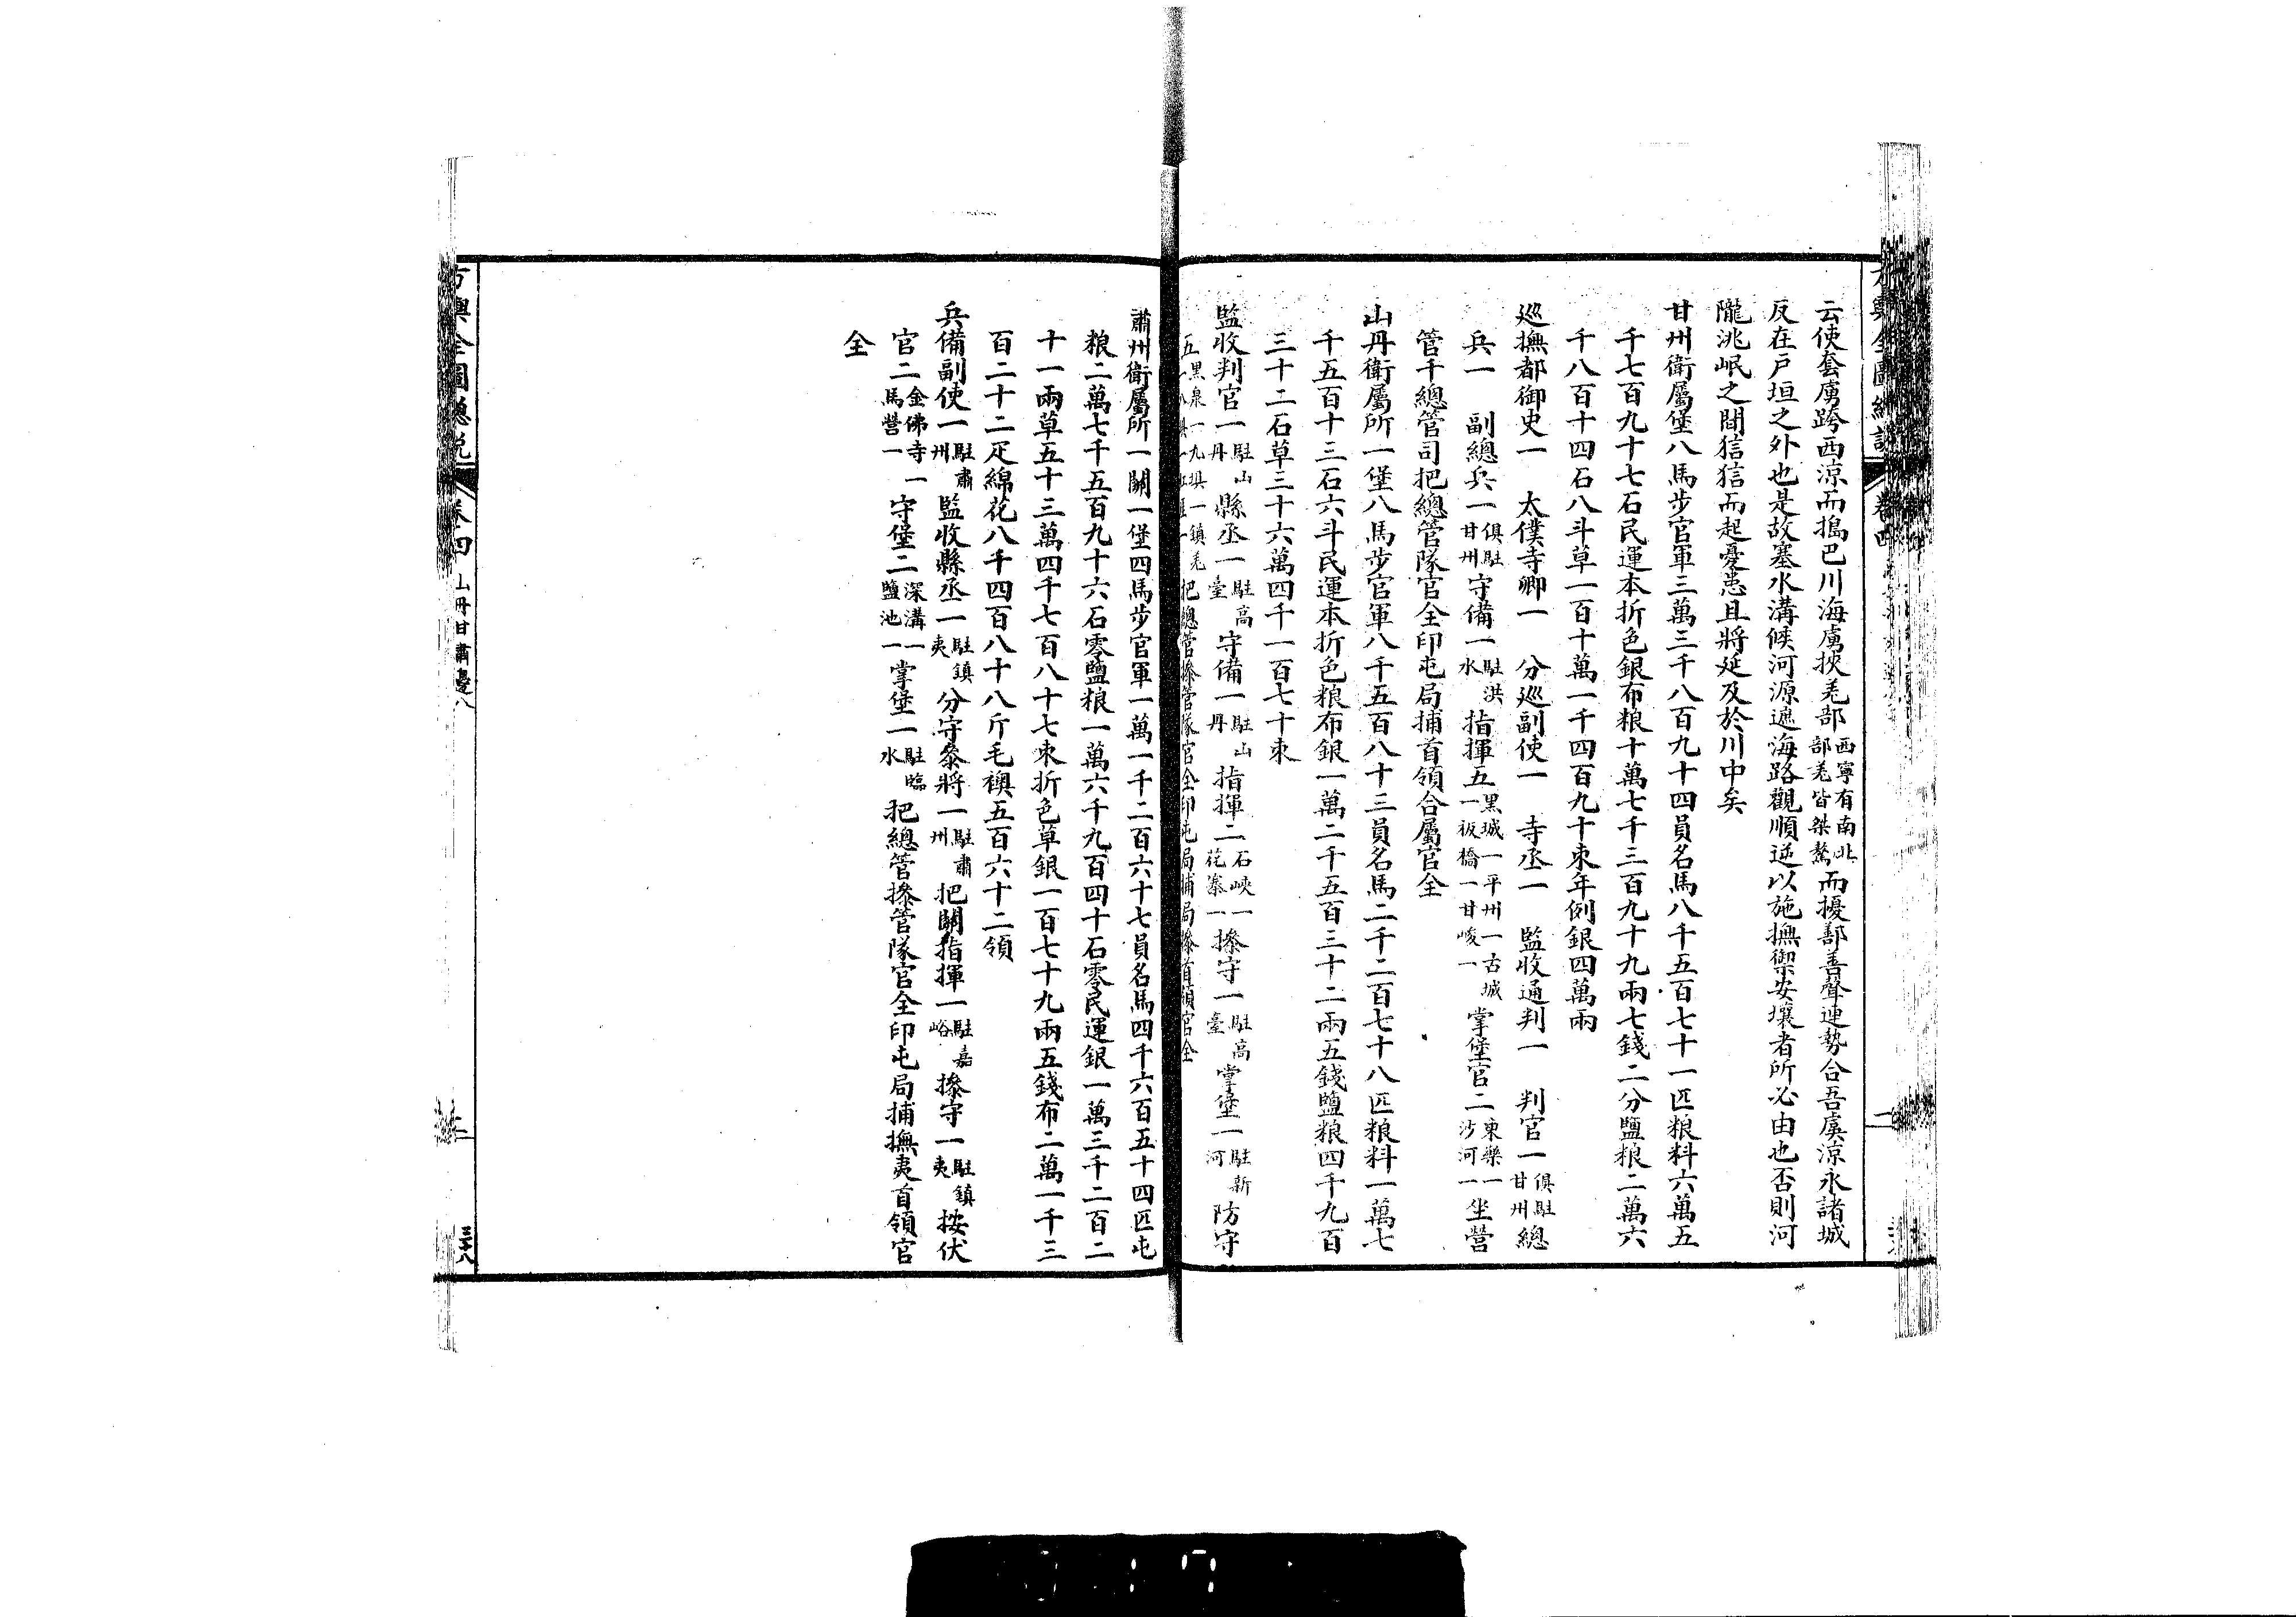 云使套虜跨西涼而搗巴川海虜挾羌部西寧有南北部羌皆桀驁而擾鄯善聲連勢合吾虞涼永諸城
反在戶垣之外也是故塞水溝候河源遮海路觀順逆以施撫禦安壤者所必由也否則河
隴洮岷之間狺狺而起憂恚且將延及於川中矣
甘州衛屬堡八馬步官軍三萬三千八百九十四員名馬八千五百七十一匹粮料六萬五
千七百九十七石民運本折色銀布粮十萬七千三百九十九兩七錢二分鹽粮二萬六
千八百十四石八斗草一百十萬一千四百九十束年例銀四萬兩
巡撫都御史一　太僕寺卿一　分巡副使一　寺丞一　監收通判一　判官一俱駐甘州總
兵一　副總兵一俱駐甘州守備一駐洪水指揮五黑城一平州一古城一板橋一甘峻一掌堡官二東樂一沙河一坐營
管千總管司把總管隊官全印屯局捕首領合屬官全
山丹衛屬所一堡八馬步官軍八千五百八十三員名馬二千二百七十八匹粮料一萬七
千五百十三石六斗民運本折色粮布銀一萬二千五百三十二兩五錢鹽粮四千九百
三十二石草三十六萬四千一百七十束
監收判官一駐山丹縣丞一駐高臺守備一駐山丹指揮二石峽一花寨一操守一駐高臺掌堡一駐新河防守
五黑泉一九壩一鎮羌把總管操管隊官全印屯局捕局操首領官全
肅州衛屬所一關一堡四馬步官軍一萬一千二百六十七員名馬四千六百五十四匹屯
粮二萬七千五百九十六石零鹽粮一萬六千九百四十石零民運銀一萬三千二百二
十一兩草五十三萬四千七百八十七束折色草銀一百七十九兩五錢布二萬一千三
百二十二疋綿花八千四百八十八斤毛襖五百六十二領
兵備副使一駐肅州監收縣丞一駐鎮夷分守叅將一駐肅州把關指揮一駐嘉峪操守一駐鎮夷按伏
官二金佛寺一馬營一守堡二深溝一鹽池一掌堡一駐臨水把總管操管隊官全印屯局捕撫夷首領官
全
方輿全圖總說　卷四　山丹甘肅邊八　三十八